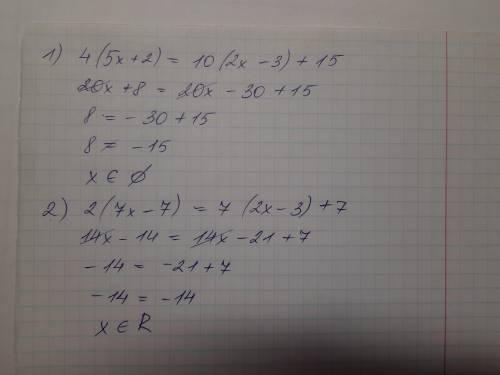 1) 4(5x+2) = 10(2x-3)+15
20x+8 = 20x-30+15
8 = -30+15
8 = -15
x ∈ ∅
2) 2(7x-7) = 7(2x-3)+7
14x-14 = 14x-21+7
-14 = -21+7
-14 = -14
x ∈ R